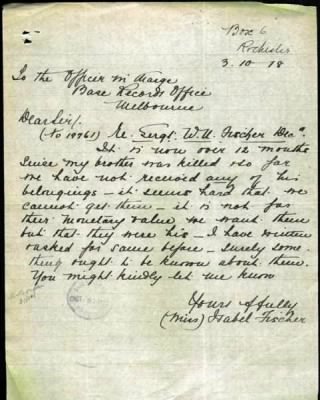 Box 6
Rochester
3.10.18
To the Officer in charge
Base Records Office
Melbourne
Dear Sir/.
Re. Sergt. W. H. Fischer Decd.
It is now over 12 months
since my brother was killed & so far
we have not received any of his
belongings – it seems hard that we
cannot get them – it is not for
their monetary value we want them
but that they were his – I have written
& asked for same before – surely some
thing ought to be known about them.
You might kindly let me know
Yours ffully
(Miss) Isabel Fischer